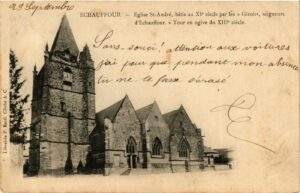 23 Septembre
ECHAUFFOUR. – Eglise St-André, bâtie au XIe siècle par les « Giroie», seigneurs
d'Echauffour. – Tour en ogive du XIIIe siècle.
Sans souci! attention aux voitures
j'ai peur que pendant mon absence
tu ne te fasses écrasé